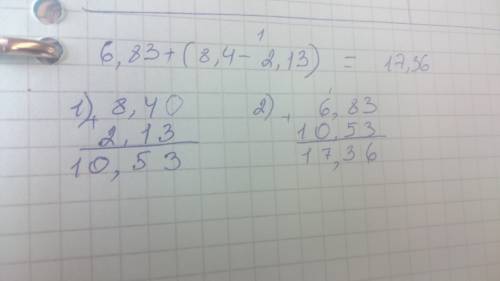 1
6,83+(8,4-2,13) = 17,36
1) + 8,40
2,13
10,53
2) + 6,83
10,53
17,36